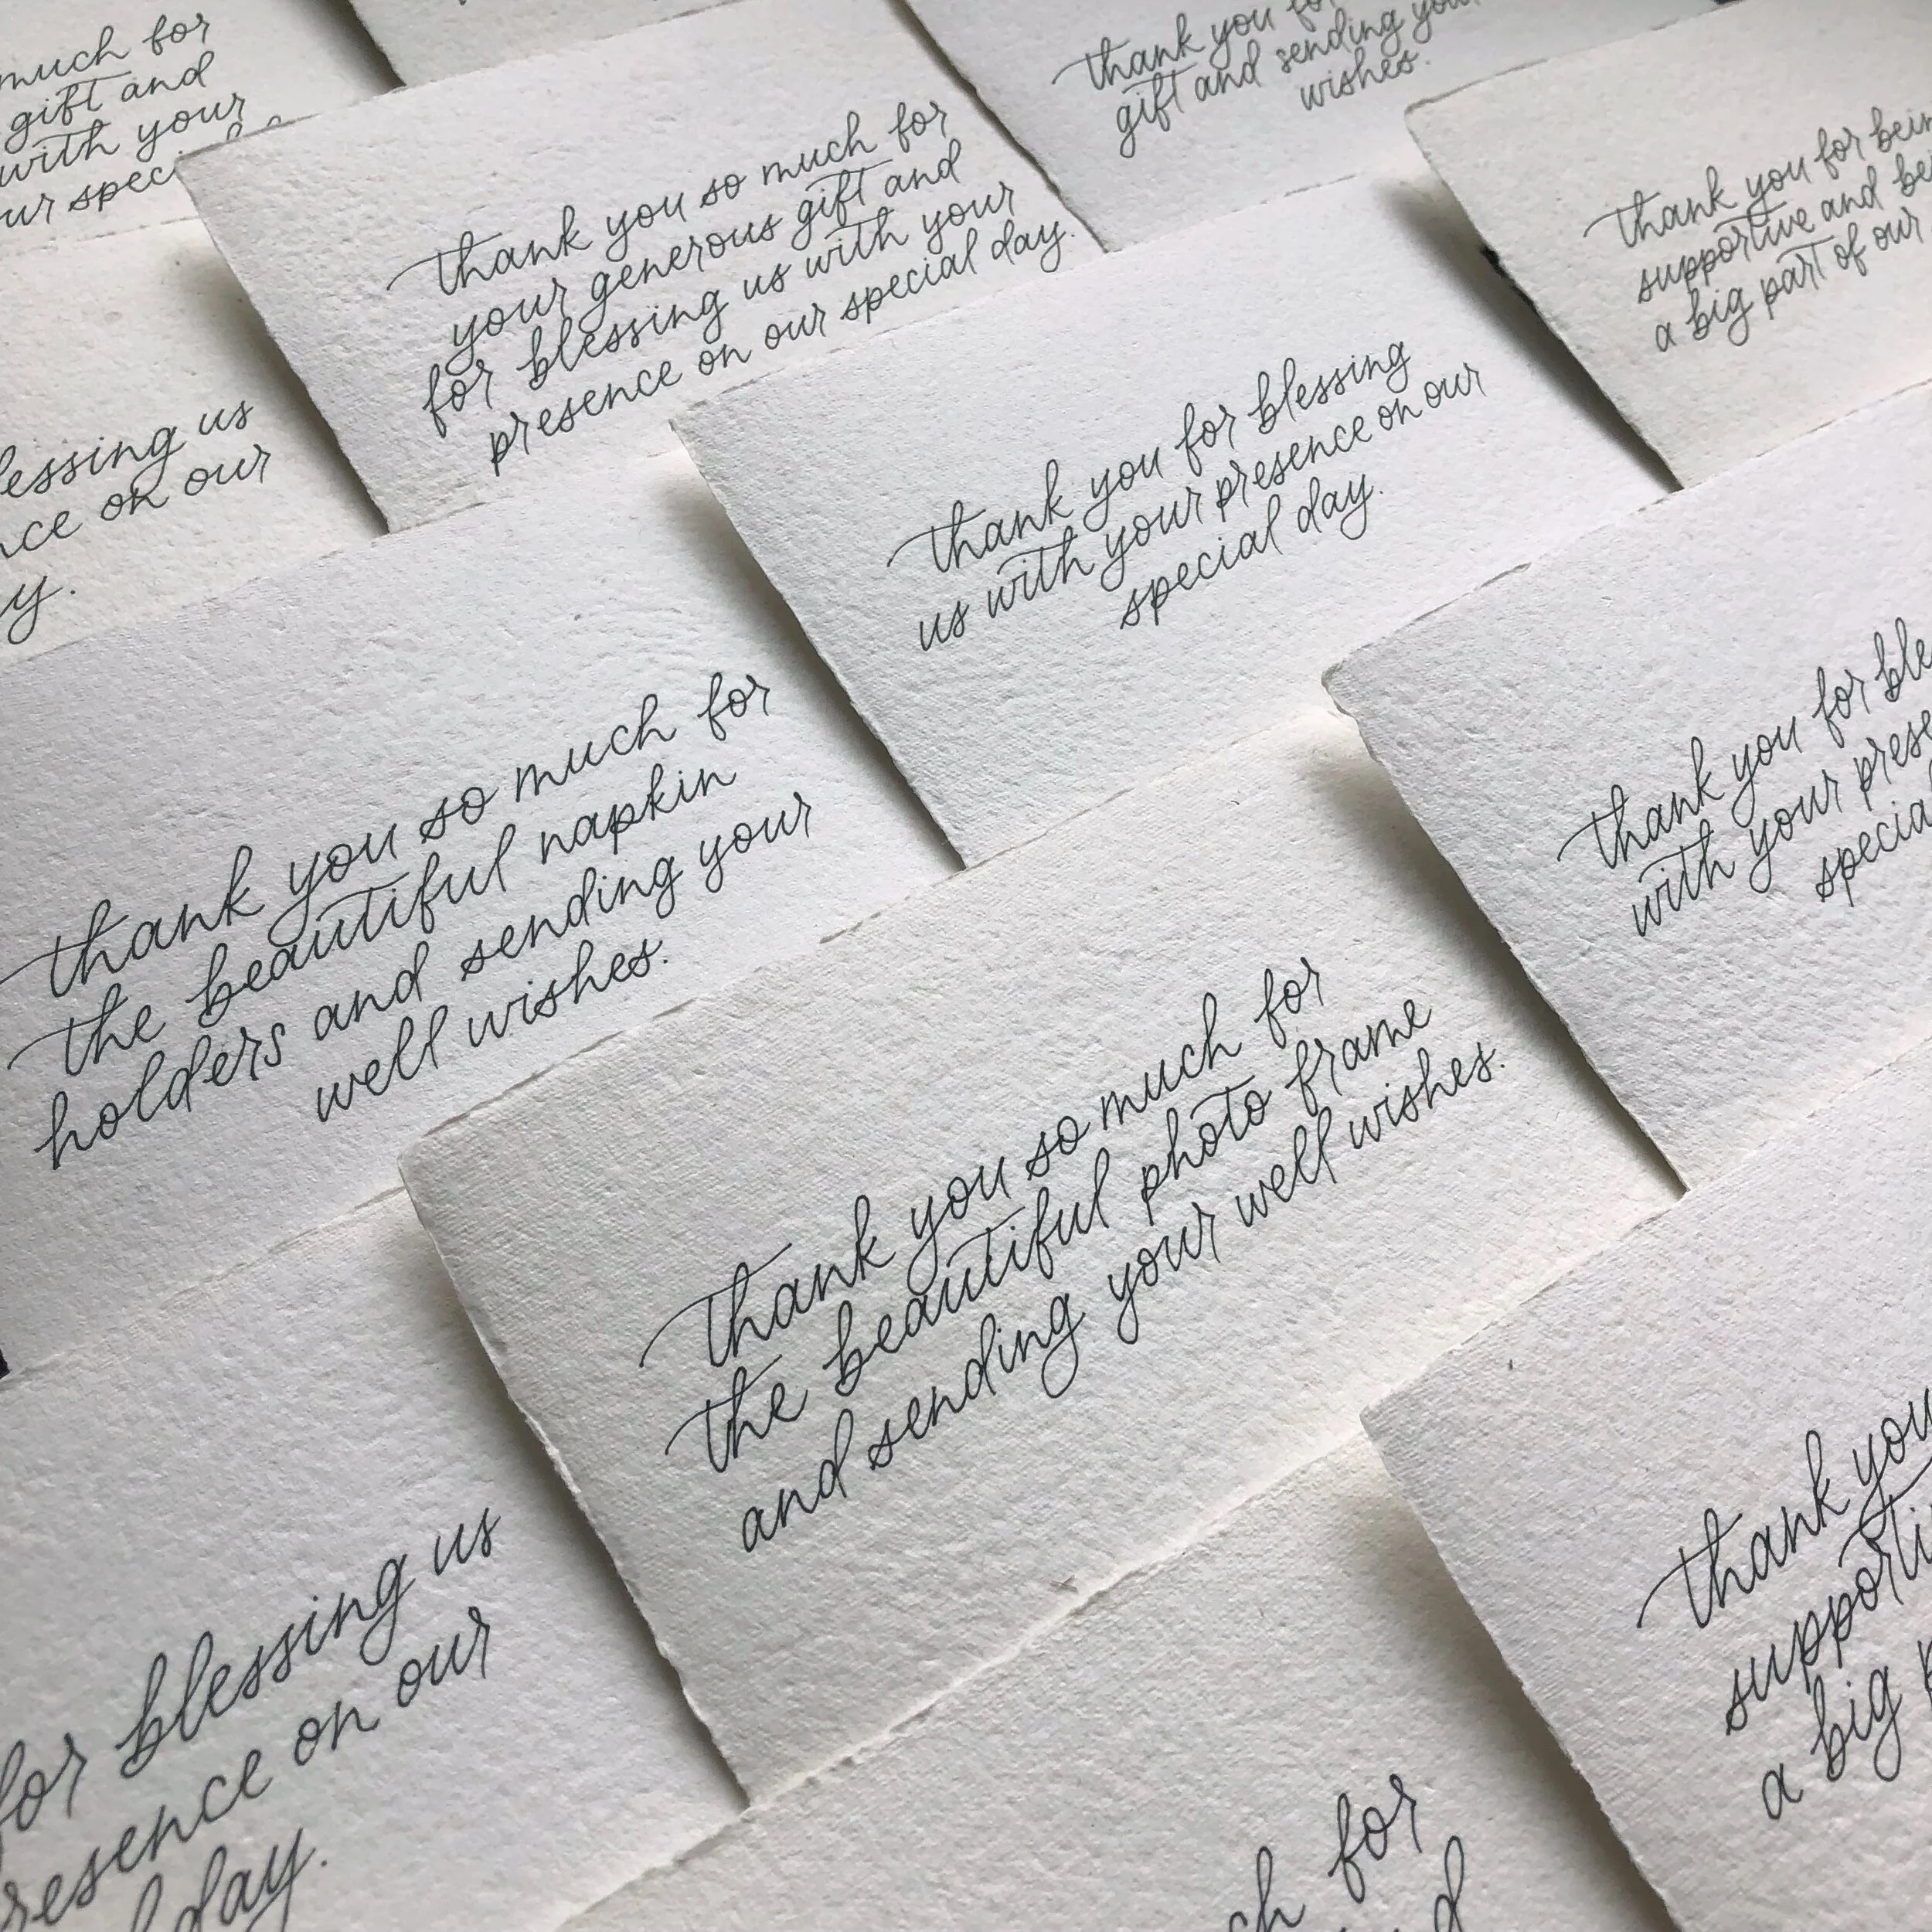 much for
gift and
with your
ur spec
thank you so much for
your generous gift and
for blessing us with your
presence on our special day.
thank you for
gift and sending your
wishes.
thank you for being
supportive and be
a big part of our
lessing us
nce on our
y.
thank you for blessing
us with your presence on our
special day.
thank you so much for
the beautiful napkin
holders and sending your
well wishes.
thank you for ble
with your prese
specia
thank you so much for
the beautiful photo frame
and sending your well wishes.
for blessing us
resence on our
day.
thank you
supporti
a big p
ch for
d